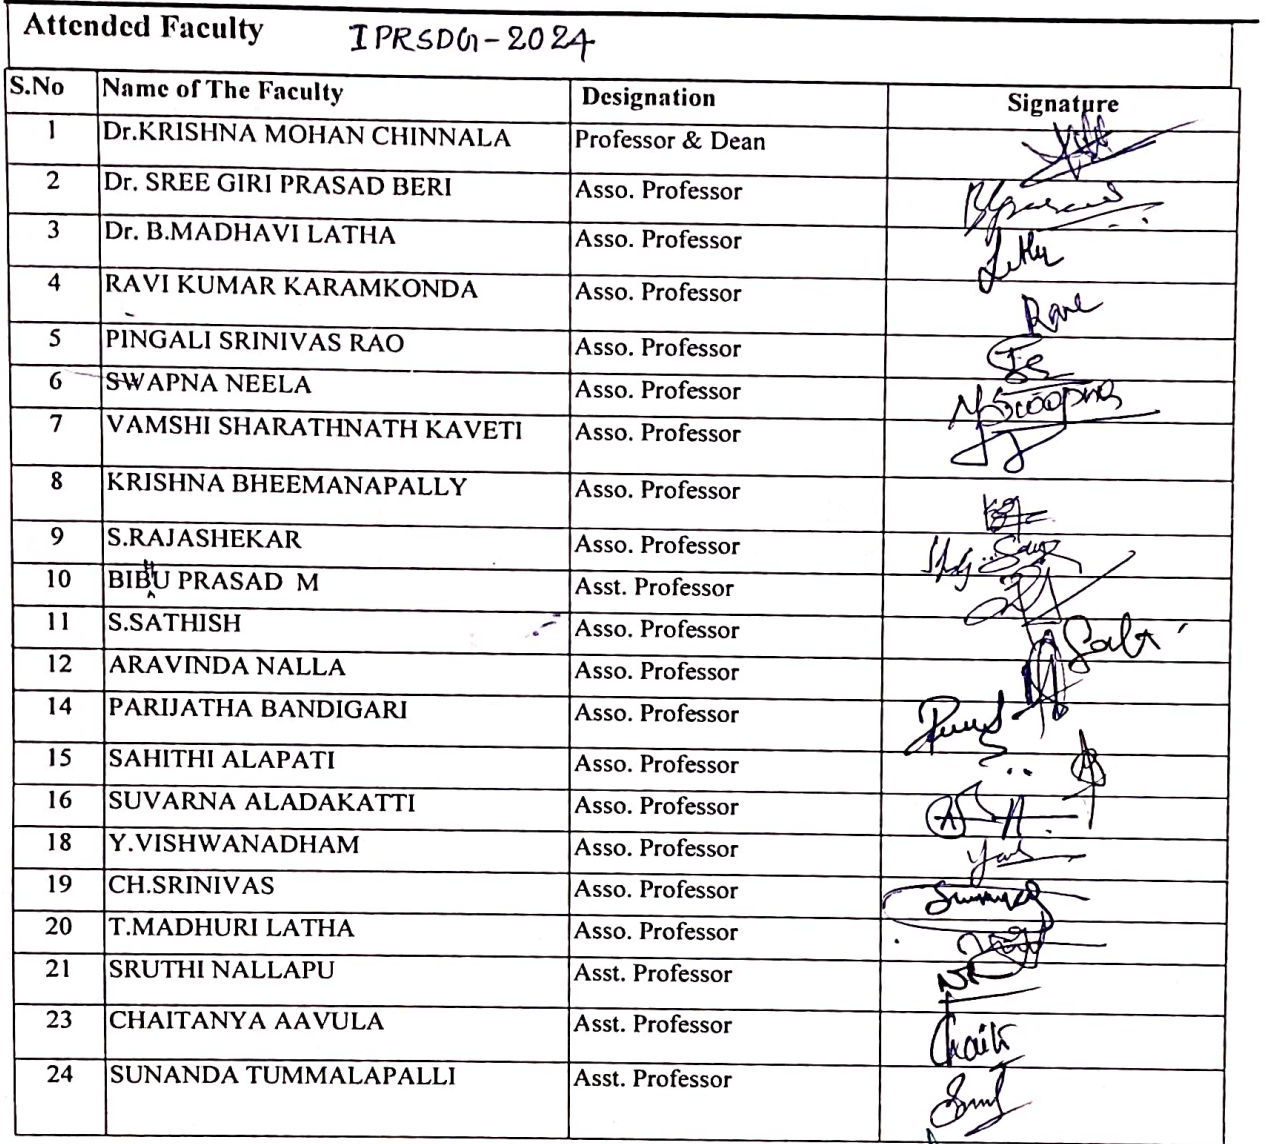 Attended Faculty IPRSDG-2024
S.No Name of The Faculty Designation Signature
1 Dr.KRISHNA MOHAN CHINNALA Professor & Dean
2 Dr. SREE GIRI PRASAD BERI Asso. Professor
3 Dr. B.MADHAVI LATHA Asso. Professor
4 RAVI KUMAR KARAMKONDA Asso. Professor
5 PINGALI SRINIVAS RAO Asso. Professor
6 SWAPNA NEELA Asso. Professor
7 VAMSHI SHARATHNATH KAVETI Asso. Professor
8 KRISHNA BHEEMANAPALLY Asso. Professor
9 S.RAJASHEKAR Asso. Professor
10 BIBHU PRASAD M Asst. Professor
11 S.SATHISH Asso. Professor
12 ARAVINDA NALLA Asso. Professor
14 PARIJATHA BANDIGARI Asso. Professor
15 SAHITHI ALAPATI Asso. Professor
16 SUVARNA ALADAKATTI Asso. Professor
18 Y.VISHWANADHAM Asso. Professor
19 CH.SRINIVAS Asso. Professor
20 T.MADHURI LATHA Asso. Professor
21 SRUTHI NALLAPU Asst. Professor
23 CHAITANYA AAVULA Asst. Professor
24 SUNANDA TUMMALAPALLI Asst. Professor